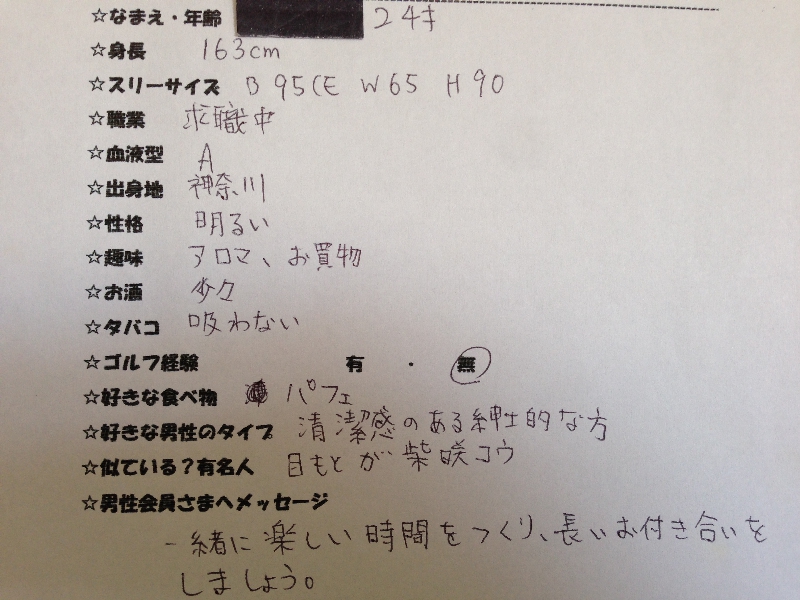 ☆なまえ・年齢 24才
☆身長 163cm
☆スリーサイズ B 95(E W65 H 90
☆職業 求職中
☆血液型 A
☆出身地 神奈川
☆性格 明るい
☆趣味 アロマ、お買物
☆お酒 少々
☆タバコ 吸わない
☆ゴルフ経験 有 ・ 無
☆好きな食べ物 パフェ
☆好きな男性のタイプ 清潔感のある紳士的な方
☆似ている?有名人 目もとが柴咲コウ
☆男性会員さまへメッセージ
一緒に楽しい時間をつくり、長いお付き合いを
しましょう。